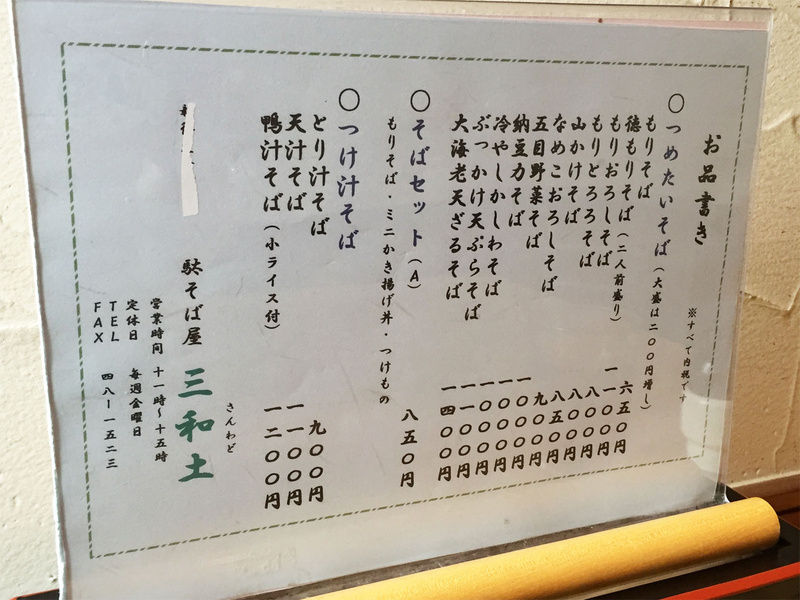 お品書き
※すべて内税です
〇つめたいそば(大盛は二〇〇円増し)
もりそば 六五〇円
徳もりそば(二人前盛り) 一一〇〇円
もりおろしそば 八〇〇円
もりとろろそば 八〇〇円
山かけそば 八五〇円
なめこおろしそば 九〇〇円
五目野菜そば 一〇〇〇円
納豆力そば 一〇〇〇円
冷やしかしわそば 一〇〇〇円
ぶっかけ天ぷらそば 一一〇〇円
大海老天ざるそば 一四〇〇円
〇そばセット(A)
もりそば・ミニかき揚げ丼・つけもの 八五〇円
〇つけ汁そば
とり汁そば 九〇〇円
天汁そば 一一〇〇円
鴨汁そば(小ライス付) 一二〇〇円
さんわど
駄そば屋 三和土
営業時間 十一時〜十五時
定休日 毎週金曜日
TEL
FAX 四八ー一五二三